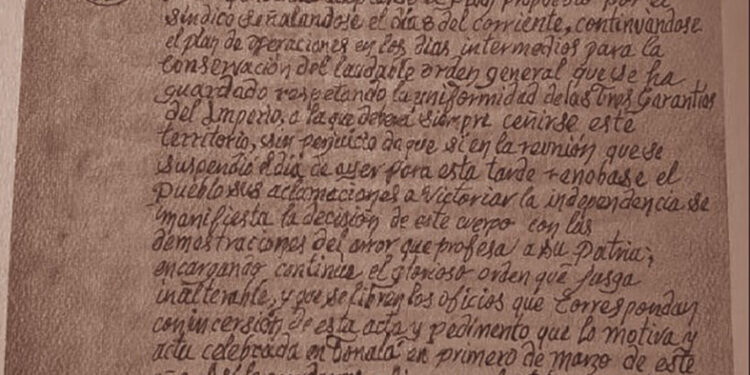 plan propuesto por el
síndico señalandose el día 8 del corriente, continuandose
el plan de operaciones en los días intermedios para la
conservación del laudable orden general que se ha
guardado respetando la uniformidad de las Tres Garantías
del Imperio, a la que deverá siempre ceñirse este
territorio, sin perjuicio de que si en la reunión que se
suspendió el día de ayer para esta tarde renobase el
Pueblo sus aclamaciones a victoriar la independencia se
manifiesta la decisión de este cuerpo con las
demostraciones del error que profesa a su Patria;
encargando continúe el glorioso orden que jusga
inalterable, y que se libren los oficios que correspondan
con incersión de esta acta y pedimento que lo motiva y
acta celebrada en Tonalá en primero de marzo de este